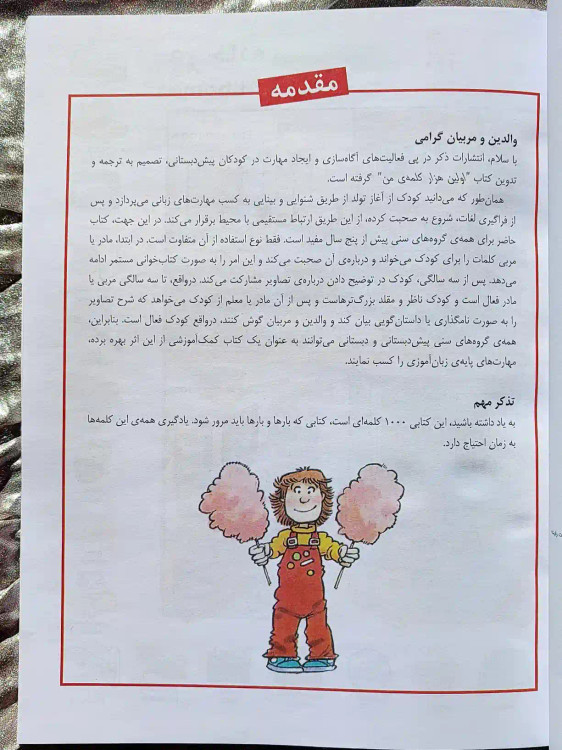 مقدمه
والدین و مربیان گرامی
با سلام، انتشارات ذکر در پی فعالیت‌های آگاه‌سازی و ایجاد مهارت در کودکان پیش‌دبستانی، تصمیم به ترجمه و
تدوین کتاب "اولین هزار کلمه‌ی من" گرفته است.
همان‌طور که می‌دانید کودک از آغاز تولد از طریق شنوایی و بینایی به کسب مهارت‌های زبانی می‌پردازد و پس
از فراگیری لغات، شروع به صحبت کرده، از این طریق ارتباط مستقیمی با محیط برقرار می‌کند. در این جهت، کتاب
حاضر برای همه‌ی گروه‌های سنی پیش از پنج سال مفید است. فقط نوع استفاده از آن متفاوت است. در ابتدا، مادر یا
مربی کلمات را برای کودک می‌خواند و درباره‌ی آن صحبت می‌کند و این امر را به صورت کتاب‌خوانی مستمر ادامه
می‌دهد. پس از سه سالگی، کودک در توضیح دادن درباره‌ی تصاویر مشارکت می‌کند. درواقع، تا سه سالگی مربی یا
مادر فعال است و کودک ناظر و مقلد بزرگ‌ترهاست و پس از آن مادر یا معلم از کودک می‌خواهد که شرح تصاویر
را به صورت نامگذاری یا داستان‌گویی بیان کند و والدین و مربیان گوش کنند، درواقع کودک فعال است. بنابراین،
همه‌ی گروه‌های سنی پیش‌دبستانی و دبستانی می‌توانند به عنوان یک کتاب کمک‌آموزشی از این اثر بهره برده،
مهارت‌های پایه‌ی زبان‌آموزی را کسب نمایند.
تذکر مهم
به یاد داشته باشید، این کتابی ۱۰۰۰ کلمه‌ای است، کتابی که بارها و بارها باید مرور شود. یادگیری همه‌ی این کلمه‌ها
به زمان احتیاج دارد.